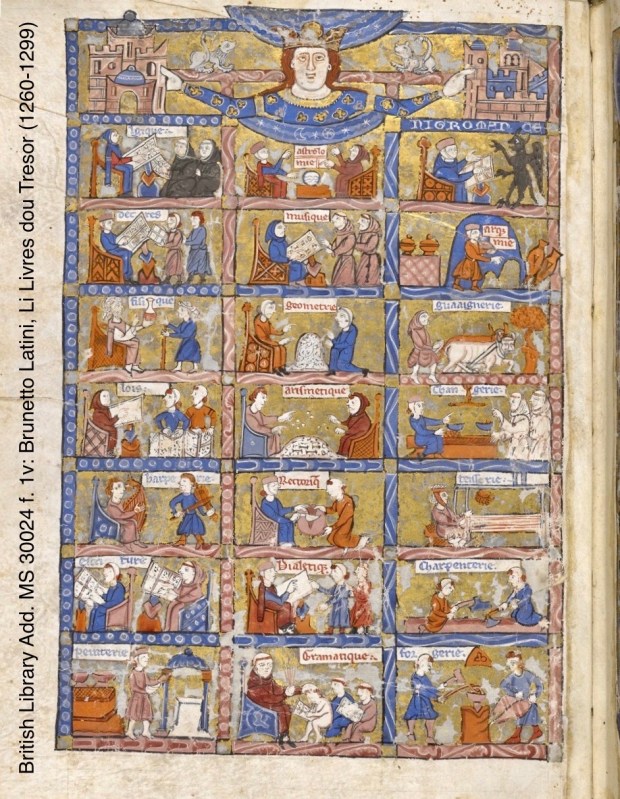 British Library Add. MS 30024 f. 1v: Brunetto Latini, Li Livres dou Tresor (1260-1299)
NIGROMANCE
logique
astrolo
mie
decres
musique
arqi
mie
fisique
geometrie
guaaignerie
lois
arismetique
changerie
harperie
Rectoriq
tisserie
escriture
Dialetiq
Charpenterie
peinterie
Gramatique
forgerie